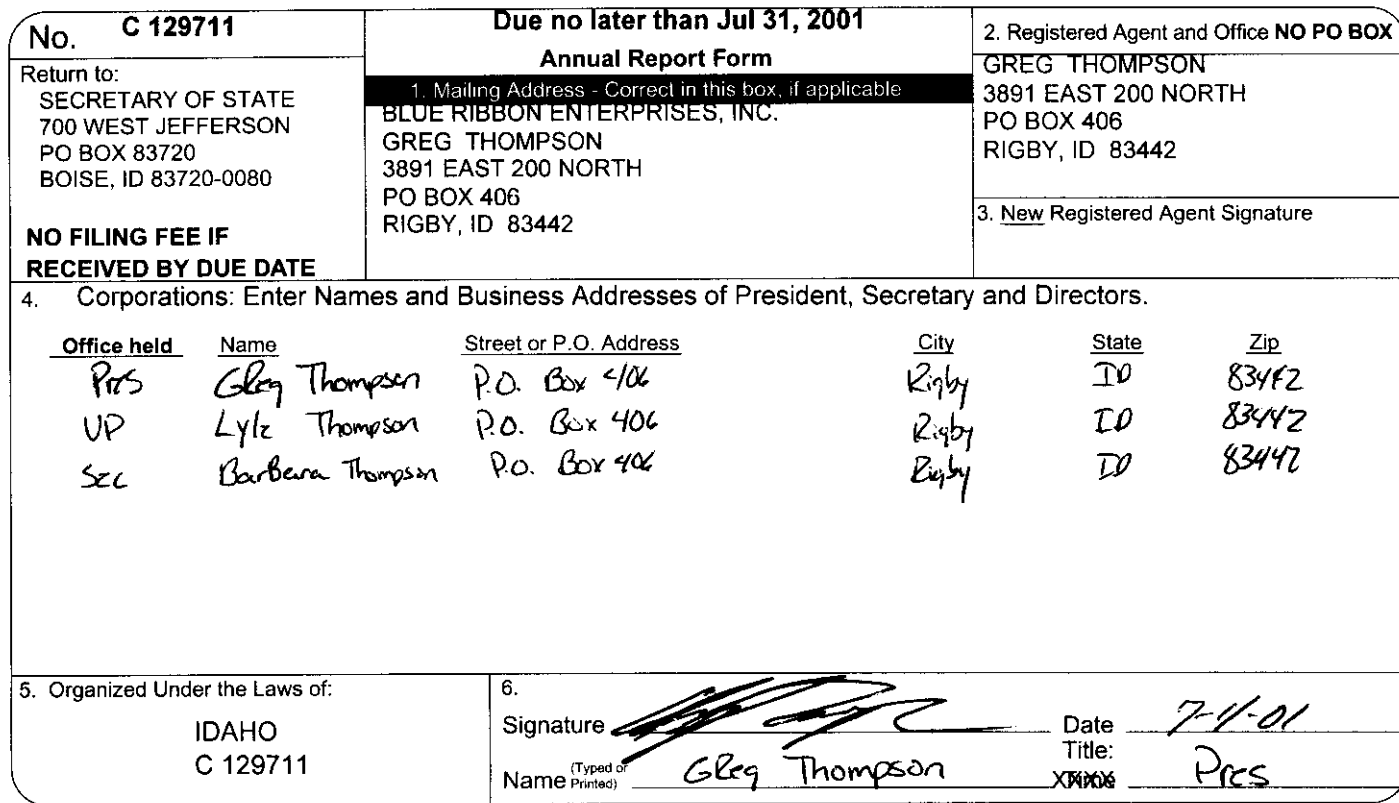 No. C 129711
Return to:
SECRETARY OF STATE
700 WEST JEFFERSON
PO BOX 83720
BOISE, ID 83720-0080
NO FILING FEE IF
RECEIVED BY DUE DATE
Due no later than Jul 31, 2001
Annual Report Form
1. Mailing Address - Correct in this box, if applicable
BLUE RIBBON ENTERPRISES, INC.
GREG THOMPSON
3891 EAST 200 NORTH
PO BOX 406
RIGBY, ID 83442
2. Registered Agent and Office NO PO BOX
GREG THOMPSON
3891 EAST 200 NORTH
PO BOX 406
RIGBY, ID 83442
3. New Registered Agent Signature
4. Corporations: Enter Names and Business Addresses of President, Secretary and Directors.
Office held Name Street or P.O. Address City State Zip
Pres Greg Thompson P.O. Box 406 Rigby ID 83442
VP Lyle Thompson P.O. Box 406 Rigby ID 83442
Sec Barbara Thompson P.O. Box 406 Rigby ID 83442
5. Organized Under the Laws of:
IDAHO
C 129711
6.
Signature Date
Title:
Name (Typed or Printed) Greg Thompson Pres